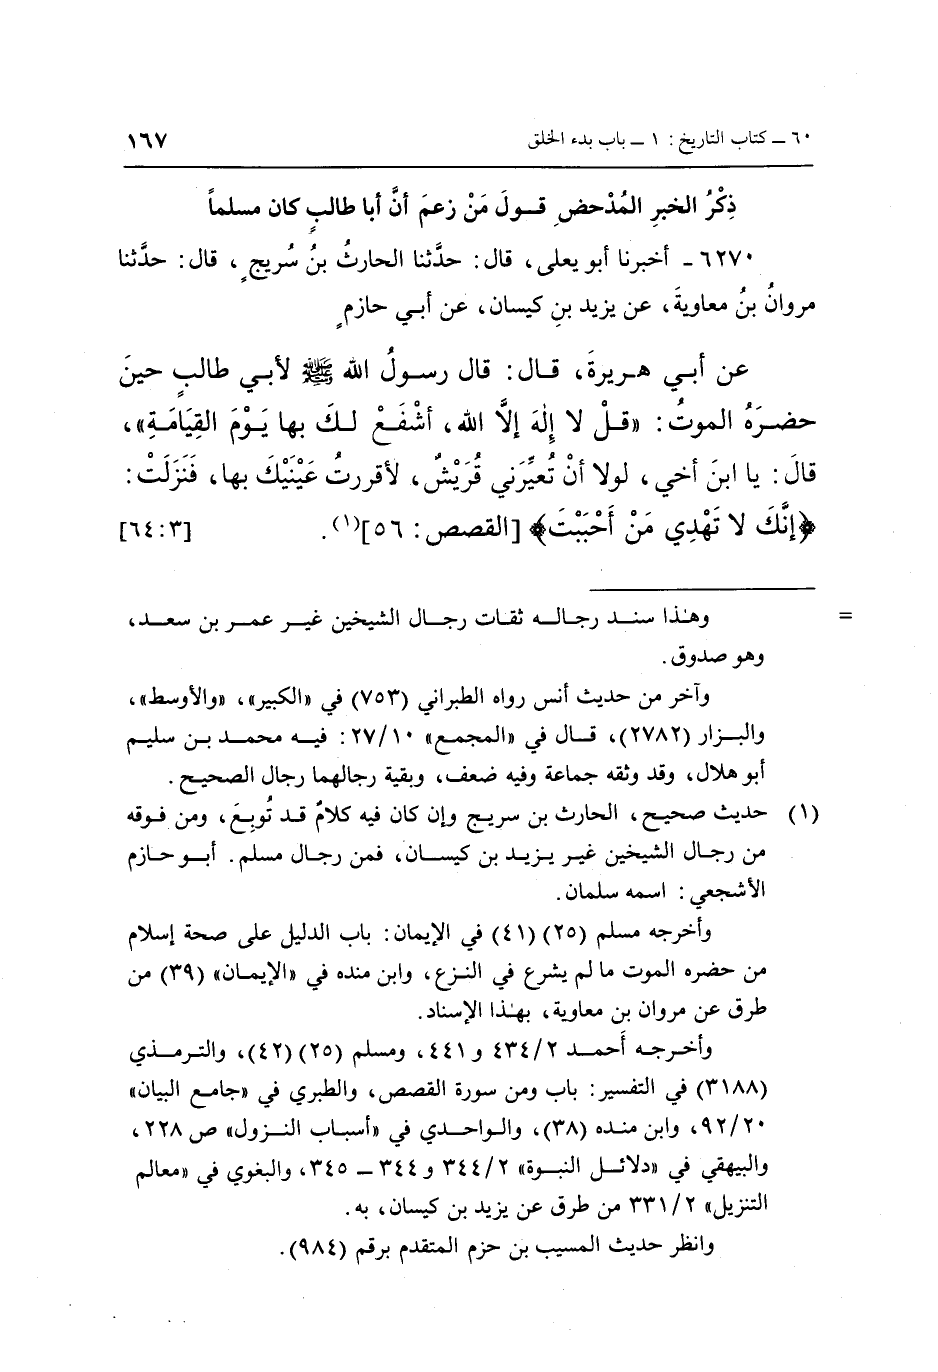 ٦٠ ـ كتاب التاريخ : ١ ـ باب بدء الخلق ١٦٧
ذِكْرُ الخبرِ المُدْحضِ قـولَ مَنْ زعمَ أنَّ أبا طالبٍ كان مسلماً
٦٢٧٠ ـ أخبرنا أبو يعلى، قال: حدَّثنا الحارثُ بنُ سُريجٍ، قال: حدَّثنا
مروانُ بنُ معاويةَ، عن يزيد بنِ كيسان، عن أبـي حازمٍ
عن أبـي هـريرةَ، قـال: قال رسولُ الله ﷺ لأبـي طالبٍ حينَ
حضـرَهُ الموتُ: «قـلْ لا إلٰهَ إلَّا الله، أشْفَعْ لـكَ بها يَـوْمَ القِيَامَةِ»،
قالَ: يا ابنَ أخي، لولا أنْ تُعيِّرَني قُرَيْشٌ، لأقررتُ عَيْنَيْكَ بها، فَنَزَلَتْ:
﴿إنَّكَ لا تَهْدِي مَنْ أَحْبَبْتَ﴾ [القصص: ٥٦](١). [٦٤:٣]
= وهـٰذا سنـد رجـالـه ثقـات رجـال الشيخين غيـر عمـر بن سعـد،
وهو صدوق.
وآخر من حديث أنس رواه الطبراني (٧٥٣) في «الكبير»، «والأوسط»،
والبـزار (٢٧٨٢)، قـال في «المجمع» ٢٧/١٠: فيـه محمـد بـن سليم
أبو هلال، وقد وثقه جماعة وفيه ضعف، وبقية رجالهما رجال الصحيح.
(١) حديث صحيح، الحارث بن سريج وإن كان فيه كلامٌ قـد تُوبِعَ، ومن فوقه
من رجـال الشيخين غير يـزيـد بن كيسـان، فمن رجال مسلم. أبـو حازم
الأشجعي: اسمه سلمان.
وأخرجه مسلم (٢٥) (٤١) في الإيمان: باب الدليل على صحة إسلام
من حضره الموت ما لم يشرع في النـزع، وابن منده في «الإيمـان» (٣٩) من
طرق عن مروان بن معاوية، بهـٰذا الإسناد.
وأخـرجـه أحمـد ٤٣٤/٢ و ٤٤١، ومسلم (٢٥) (٤٢)، والتـرمـذي
(٣١٨٨) في التفسير: باب ومن سورة القصص، والطبري في «جامع البيان»
٩٢/٢٠، وابن منـده (٣٨)، والـواحـدي في «أسبـاب النـزول» ص ٢٢٨،
والبيهقي في «دلائـل النبـوة» ٣٤٤/٢ و ٣٤٤ ـ ٣٤٥، والبغوي في «معالم
التنزيل» ٣٣١/٢ من طرق عن يزيد بن كيسان، به.
وانظر حديث المسيب بن حزم المتقدم برقم (٩٨٤).